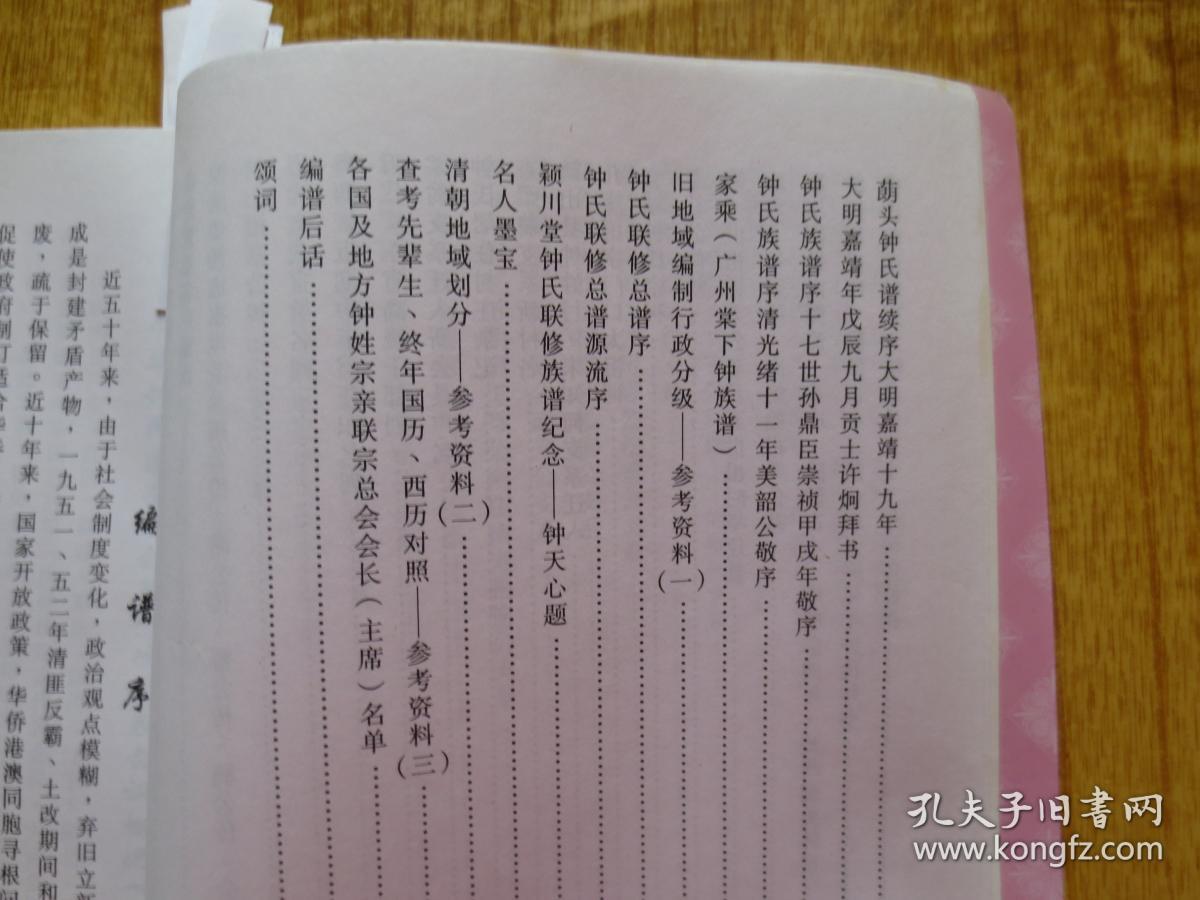 蓢头钟氏谱续序大明嘉靖十九年
大明嘉靖年戊辰九月贡士许炯拜书
钟氏族谱序十七世孙鼎臣崇祯甲戌年敬序
钟氏族谱序清光绪十一年美韶公敬序
家乘（广州棠下钟族谱）
旧地域编制行政分级——参考资料（一）
钟氏联修总谱序
钟氏联修总谱源流序
颖川堂钟氏联修族谱纪念——钟天心题
名人墨宝
清朝地域划分——参考资料（二）
查考先辈生、终年国历、西历对照——参考资料（三）
各国及地方钟姓宗亲联宗总会会长（主席）名单
编谱后话
颂词
编谱序
近五十年来，由于社会制度变化，政治观点模糊，弃旧立新
成是封建矛盾产物，一九五一、五二年清匪反霸、土改期间和
废，疏于保留。近十年来，国家开放政策，华侨港澳同胞寻根问
促使政府制订适合
孔夫子旧书网
www.kongfz.com